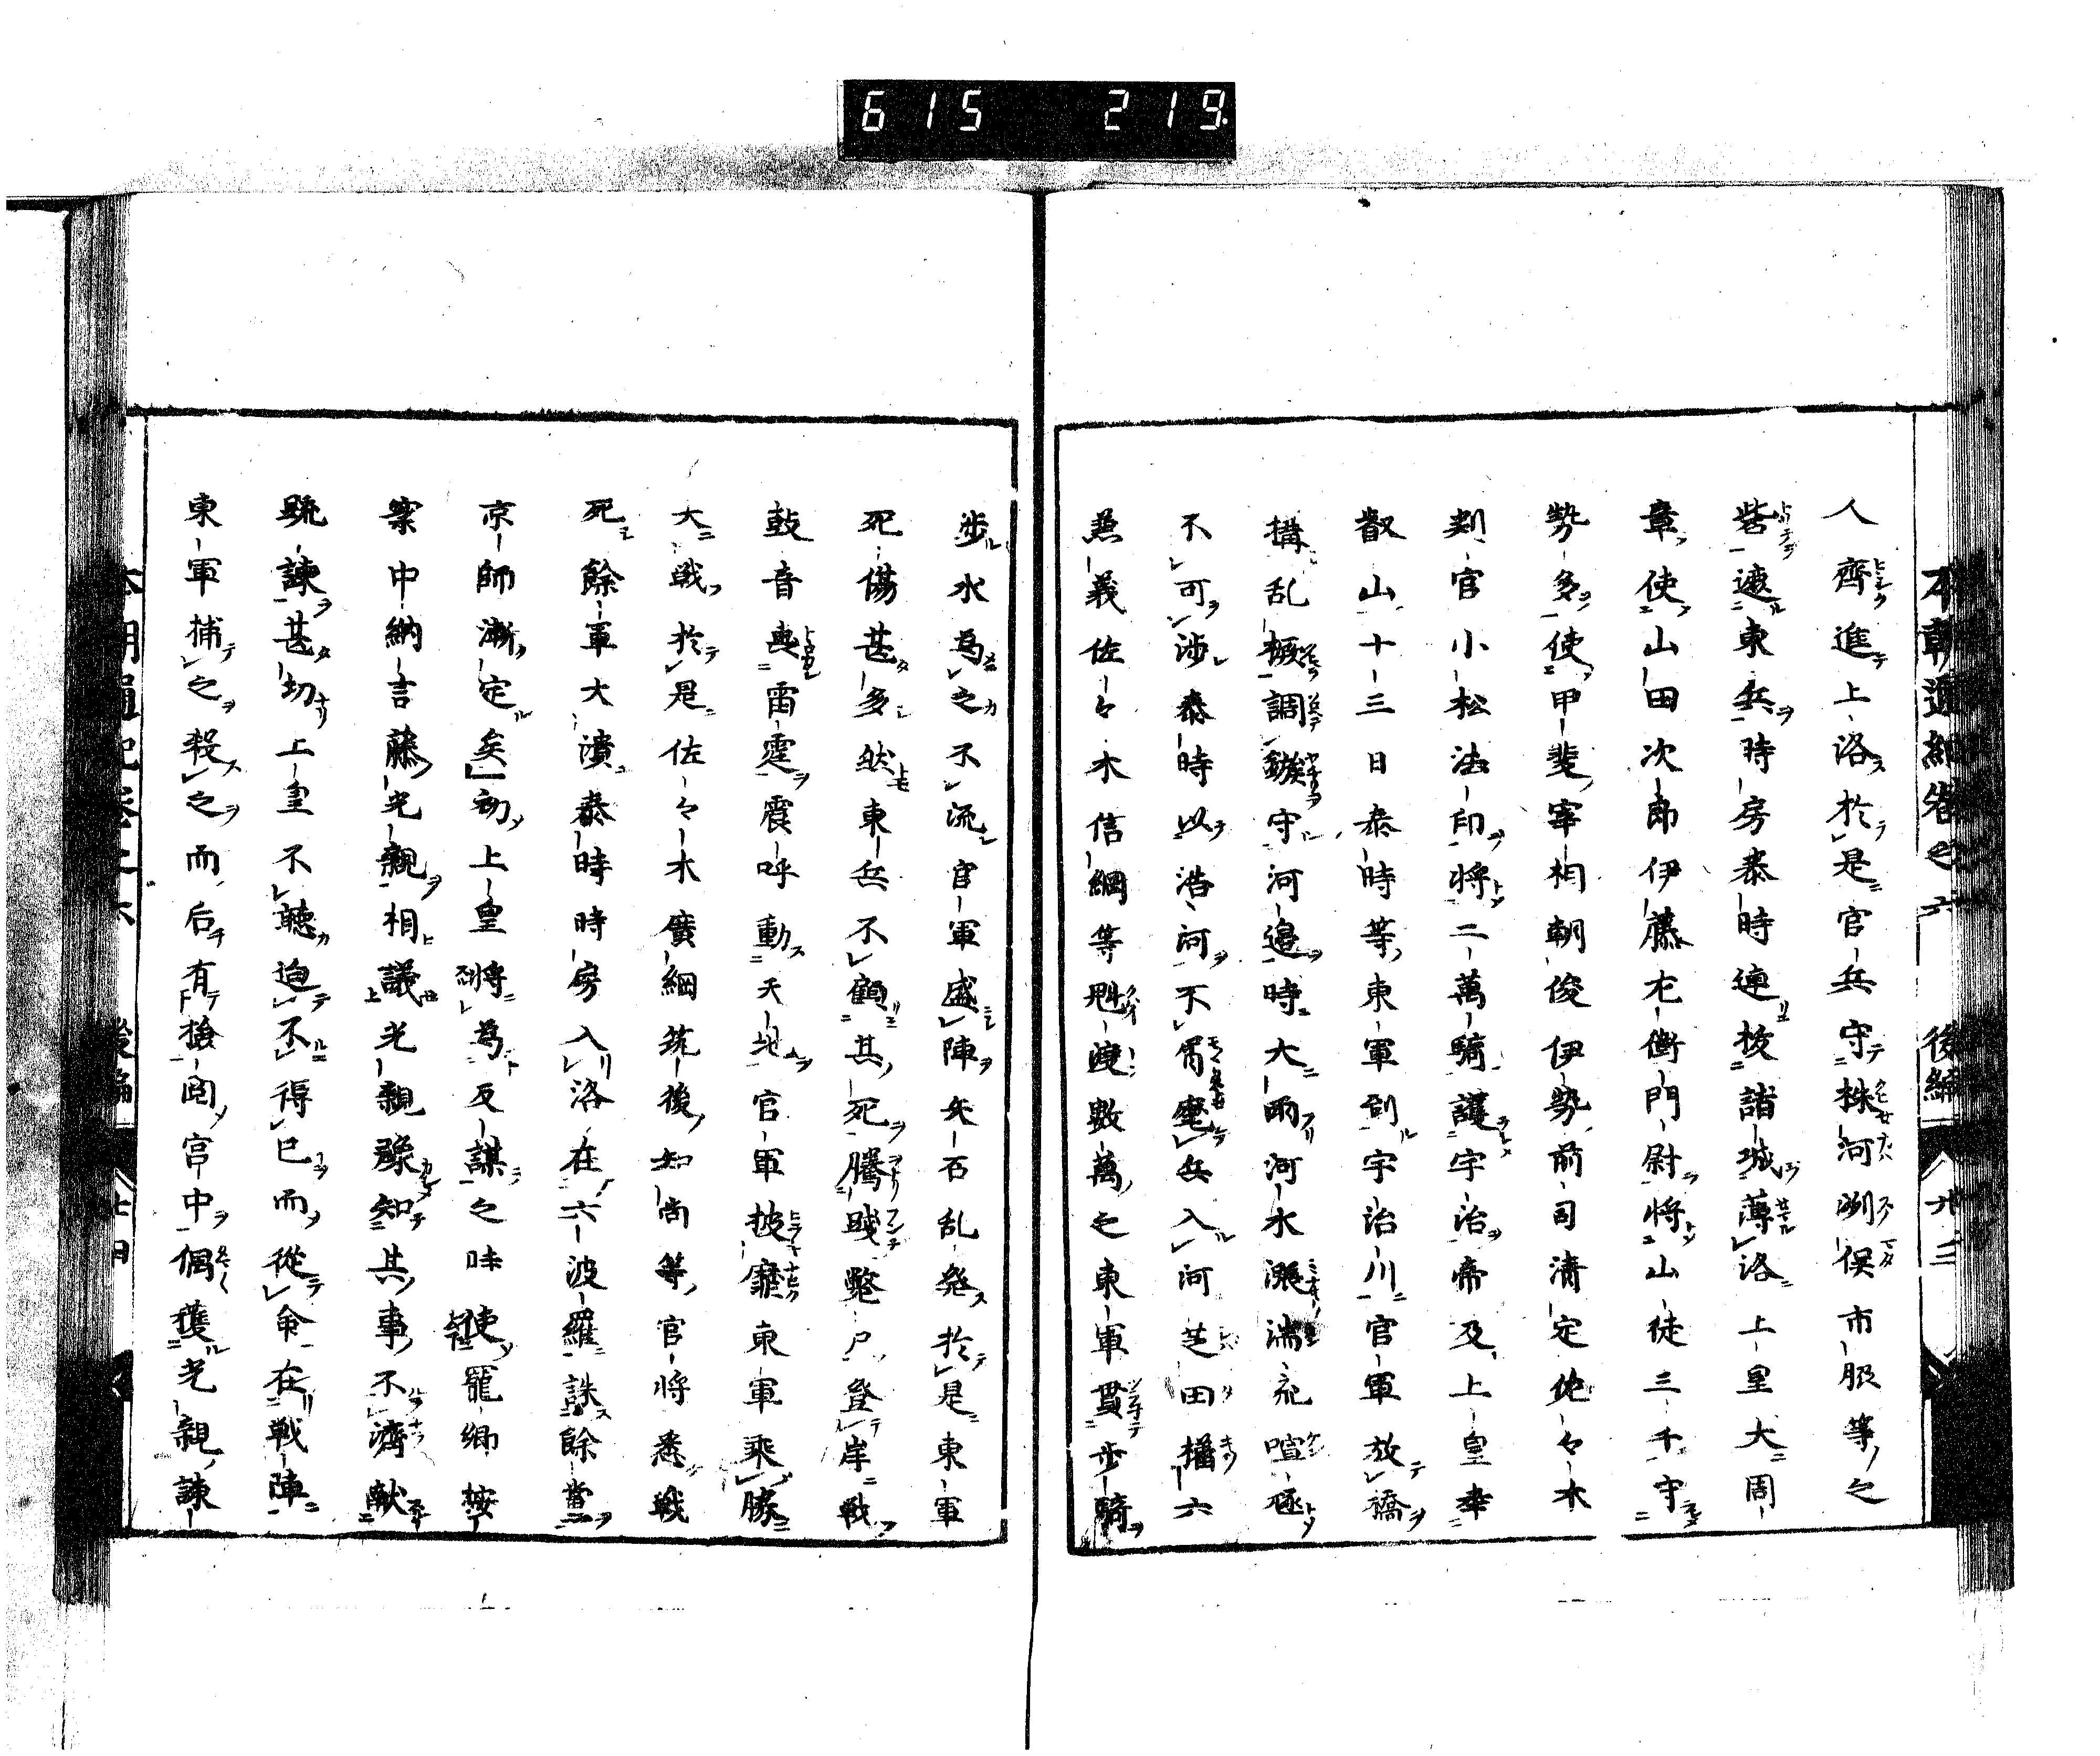 615 219
人齊進上洛於是官兵守株河渕俣市服等之
砦遮東兵時房泰時連梭諸城薄洛上皇大周
章使山田次郎伊藤左衛門尉将山徒三千守
勢多使甲斐宰相朝俊伊勢前司清定佐々木
判官小松法印将二萬騎護宇治帝及上皇幸
叡山十三日泰時等東軍到宇治川官軍放橋
構乱橛調鏃守河邊時大雨河水漲湍流喧極
不可渉泰時以浩河不屑麾兵入河芝田橘六
兼義佐々木信綱等魁渡數萬之東軍貫歩騎
渉水為之不流官軍盛陣矢石乱発於是東軍
死傷甚多然東兵不顧其死騰賤斃尸登岸戦
鼓音轟雷霆震呼動天地官軍披靡東軍乘勝
大戦於是佐々木廣綱筑後知尚等官将悉戦
死餘軍大潰泰時時房入洛在六波羅誅餘黨
京師漸定矣初上皇將為反謀之時使寵卿按
察中納言藤光親相議光親豫知其事不濟献
疏諫甚切上皇不聴迫不得已而從命在戦陣
東軍捕之殺之而后有搶閲宮中偶獲光親諫
後編